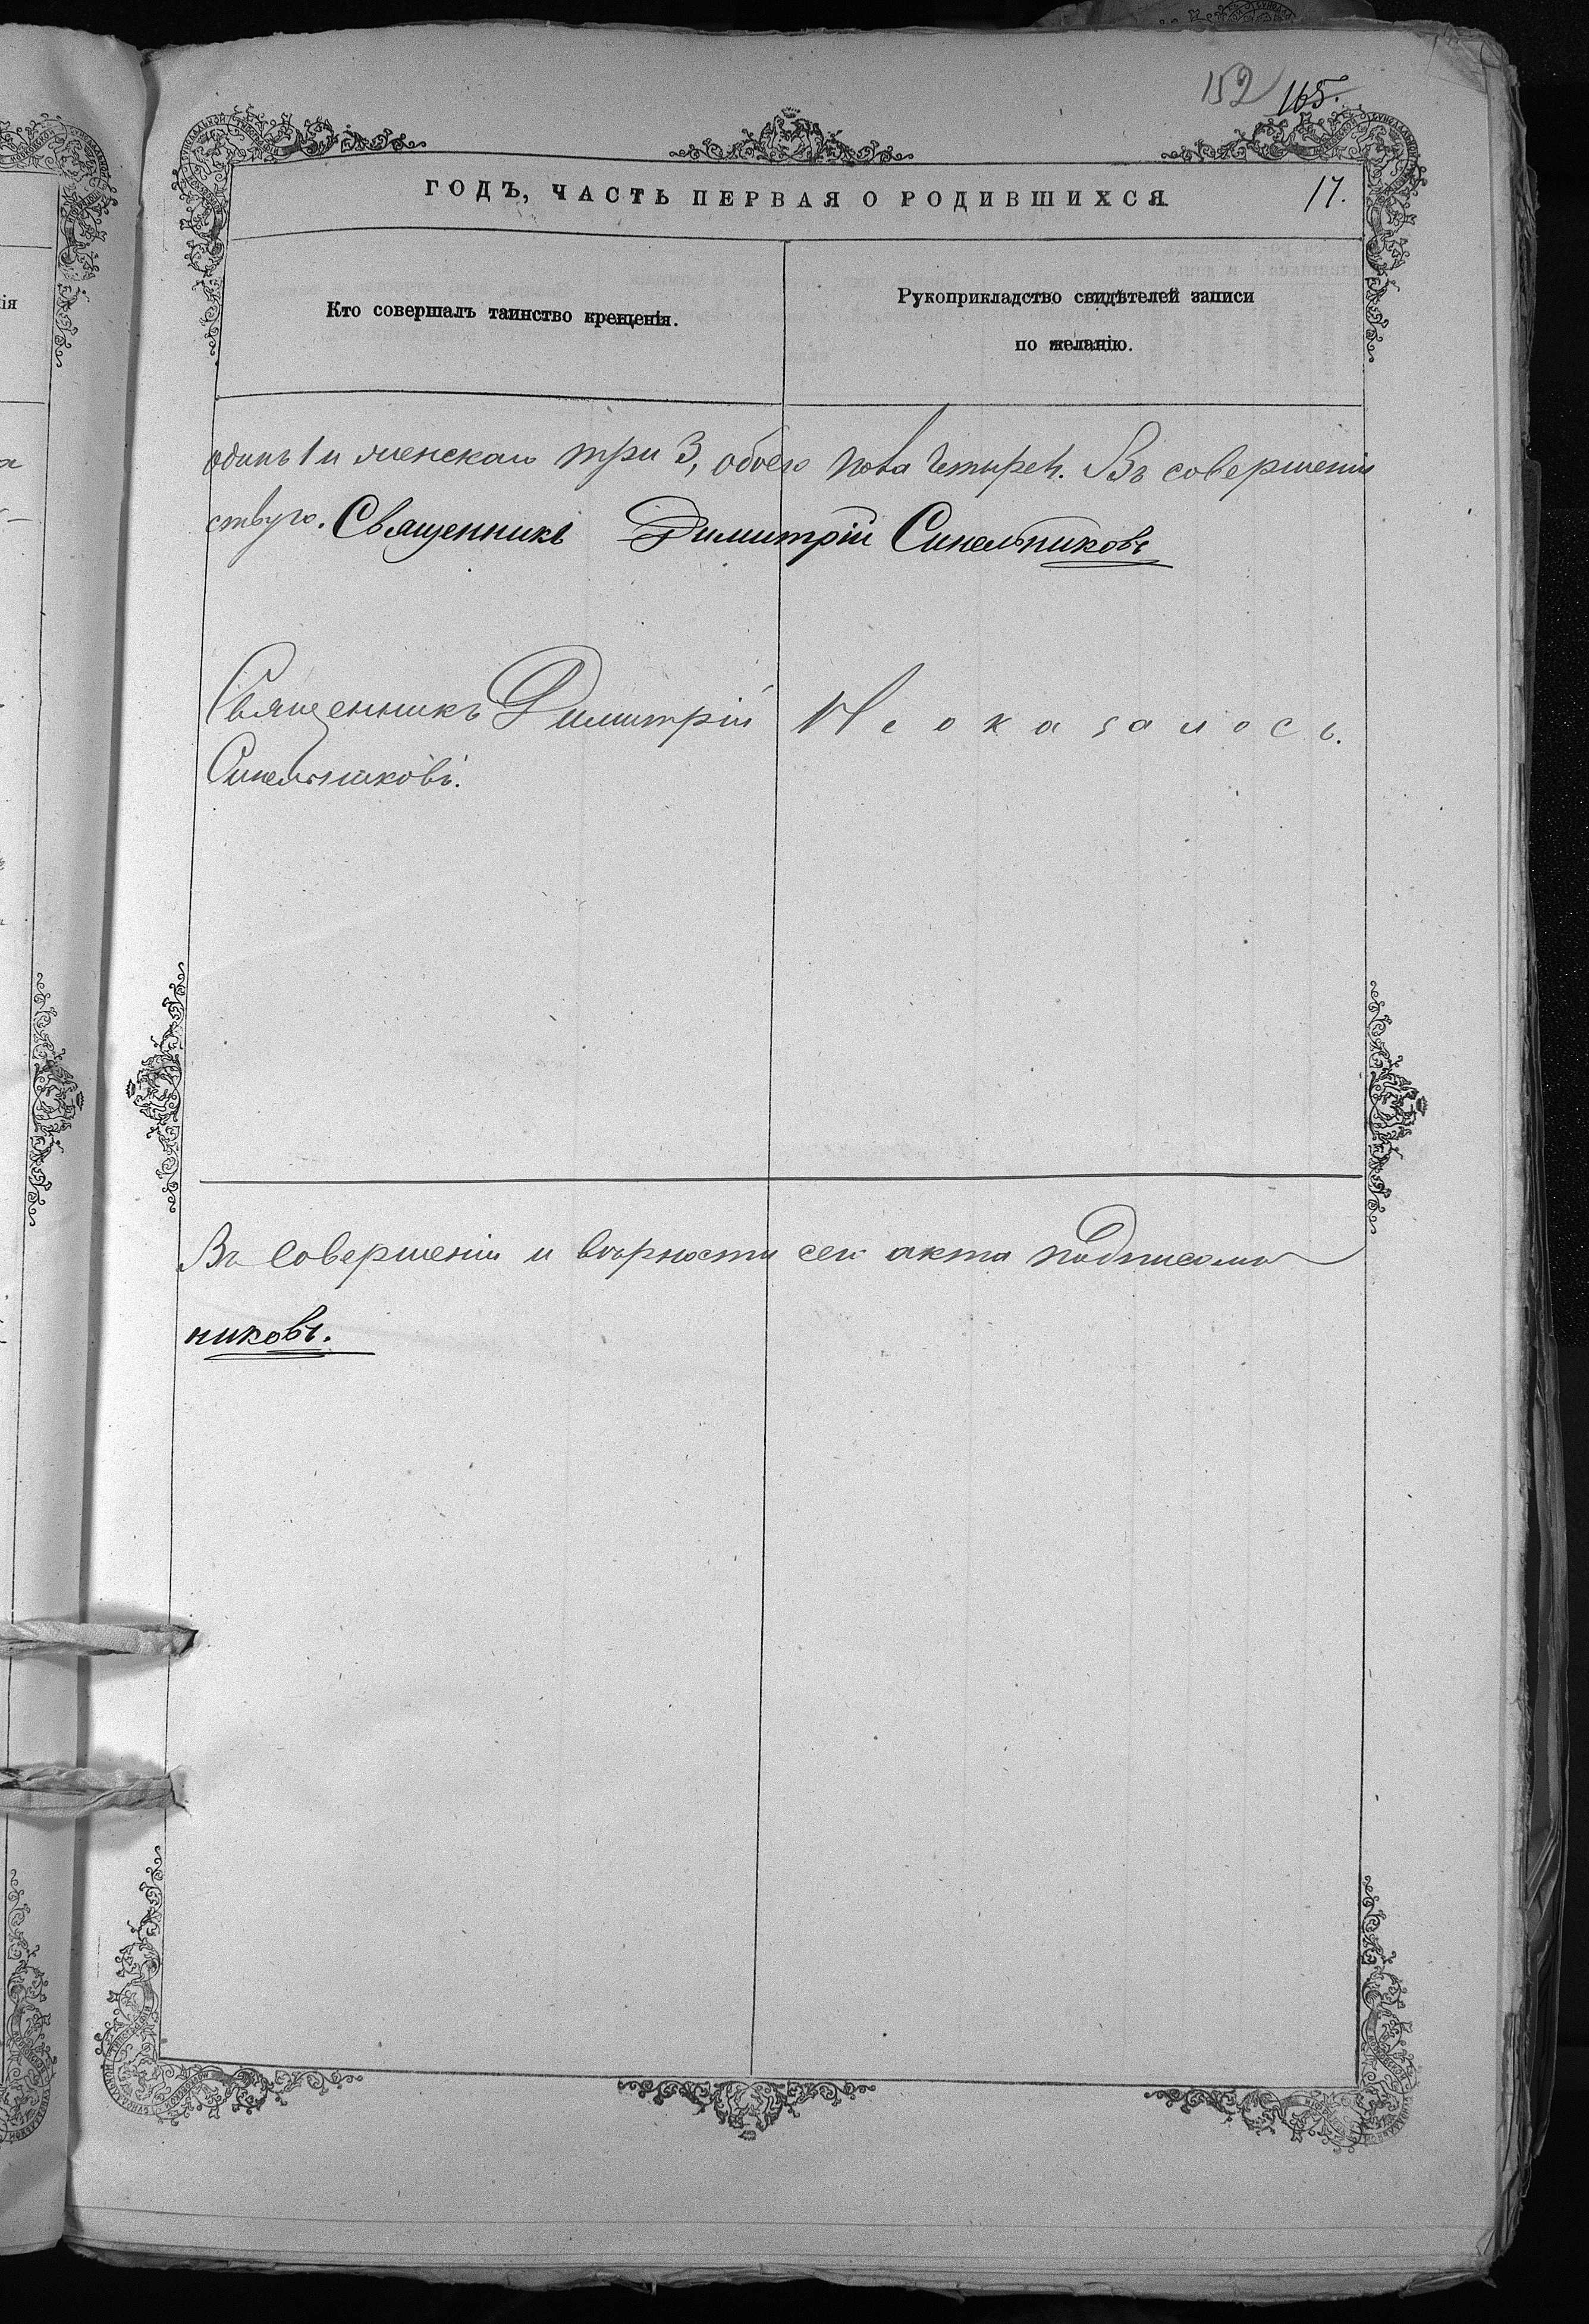 152 165.
ГОДЪ, ЧАСТЬ ПЕРВАЯ О РОДИВШИХСЯ. 17.
Кто совершалъ таинство крещенія.
Рукоприкладство свидѣтелей записи
по желанію.
одинъ 1 и женскаго три 3, обоего пола четыре 4. Въ совершеніи
ствую. Священникъ Димитрій Синельниковъ
Священникъ Димитрій
Синельниковъ.
Не оказалось.
Въ совершеніи и вѣрности сего акта подписомъ
никовъ.